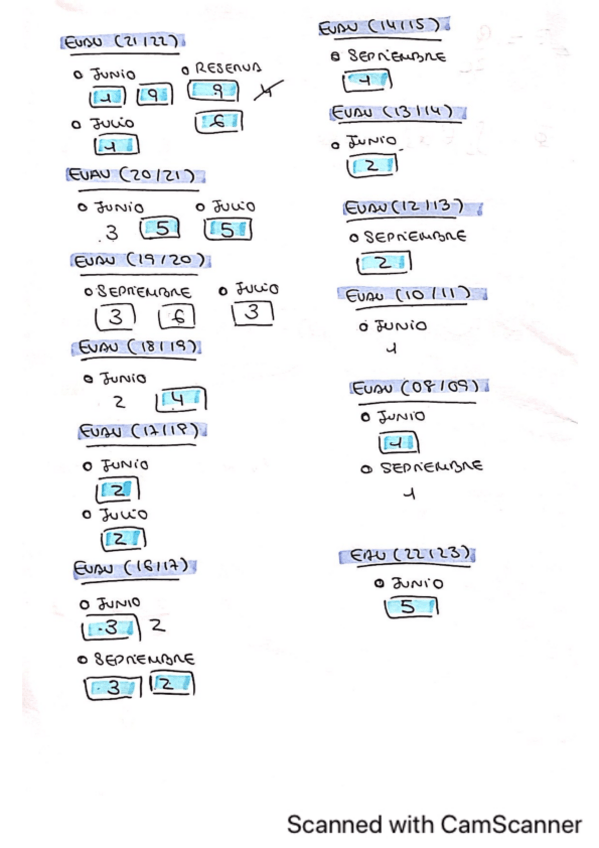 EVAU (21/22)
o JUNIO
1 9
o RESERVA
9 4
6
o JULIO
1
EVAU (20/21)
o JUNIO
3 5
o JULIO
5
EVAU (19/20)
o SEPTIEMBRE
3 6
o JULIO
3
EVAU (18/19)
o JUNIO
2 4
EVAU (17/18)
o JUNIO
2
o JULIO
2
EVAU (16/17)
o JUNIO
3 2
o SEPTIEMBRE
3 2
EVAU (14/15)
o SEPTIEMBRE
1
EVAU (13/14)
o JUNIO
2
EVAU (12/13)
o SEPTIEMBRE
2
EVAU (10/11)
o JUNIO
1
EVAU (08/09)
o JUNIO
1
o SEPTIEMBRE
1
EAU (22/23)
o JUNIO
5
Scanned with CamScanner